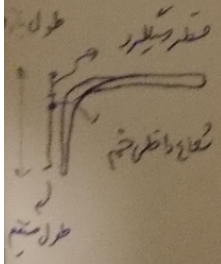 طول
قطر میلگرد
شعاع داخلی خم
طول مستقیم